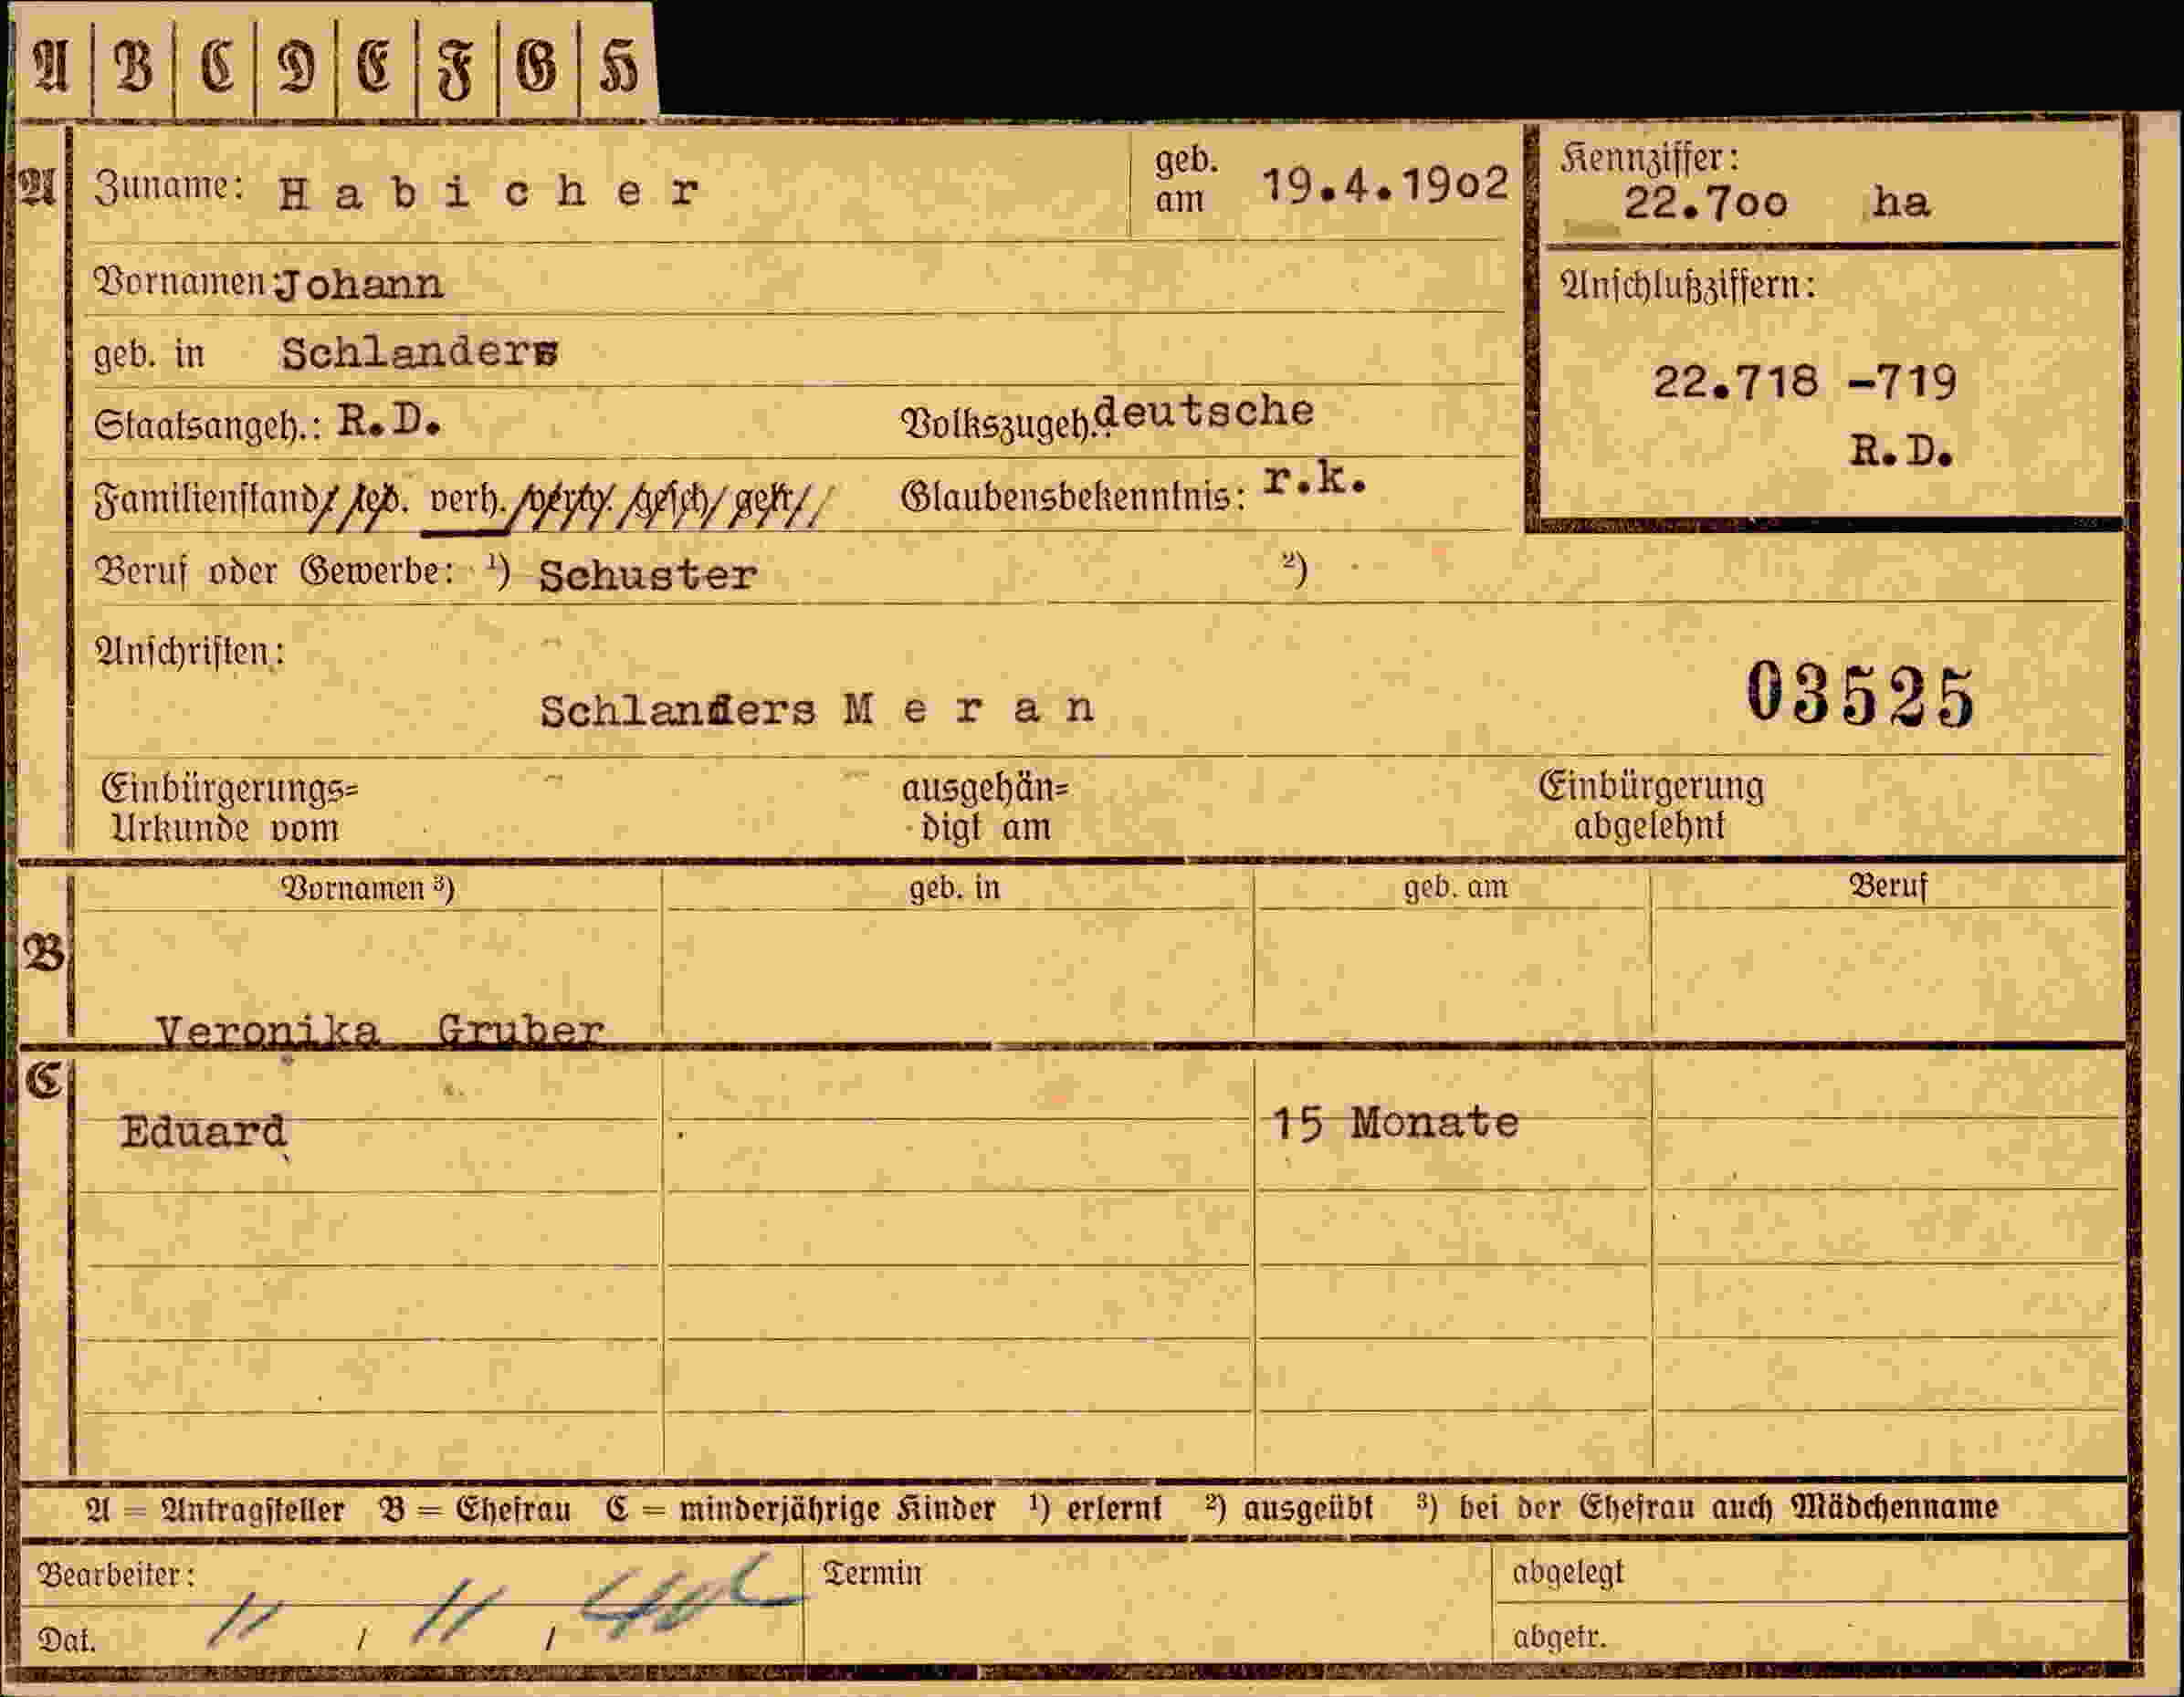 A B C D E F G H
A Zuname: Habicher geb. am 19.4.1902 Kennziffer: 22.700 ha
Vornamen: Johann
Anschlußziffern:
geb. in Schlanders
22.718 -719
Staatsangeh.: R.D. Volkszugeh.: deutsche
R.D.
Familienstand led. verh. verw. gesch. getr. Glaubensbekenntnis: r.k.
Beruf oder Gewerbe: ¹) Schuster ²)
Anschriften:
03525
Schlanders Meran
Einbürgerungs= ausgehän= Einbürgerung
Urkunde vom digt am abgelehnt
Vornamen ³) geb. in geb. am Beruf
B
Veronika Gruber
C
Eduard 15 Monate
A = Antragsteller B = Ehefrau C = minderjährige Kinder ¹) erlernt ²) ausgeübt ³) bei der Ehefrau auch Mädchenname
Bearbeiter: Termin abgelegt
Dat. 11 / 11 / abgetr.